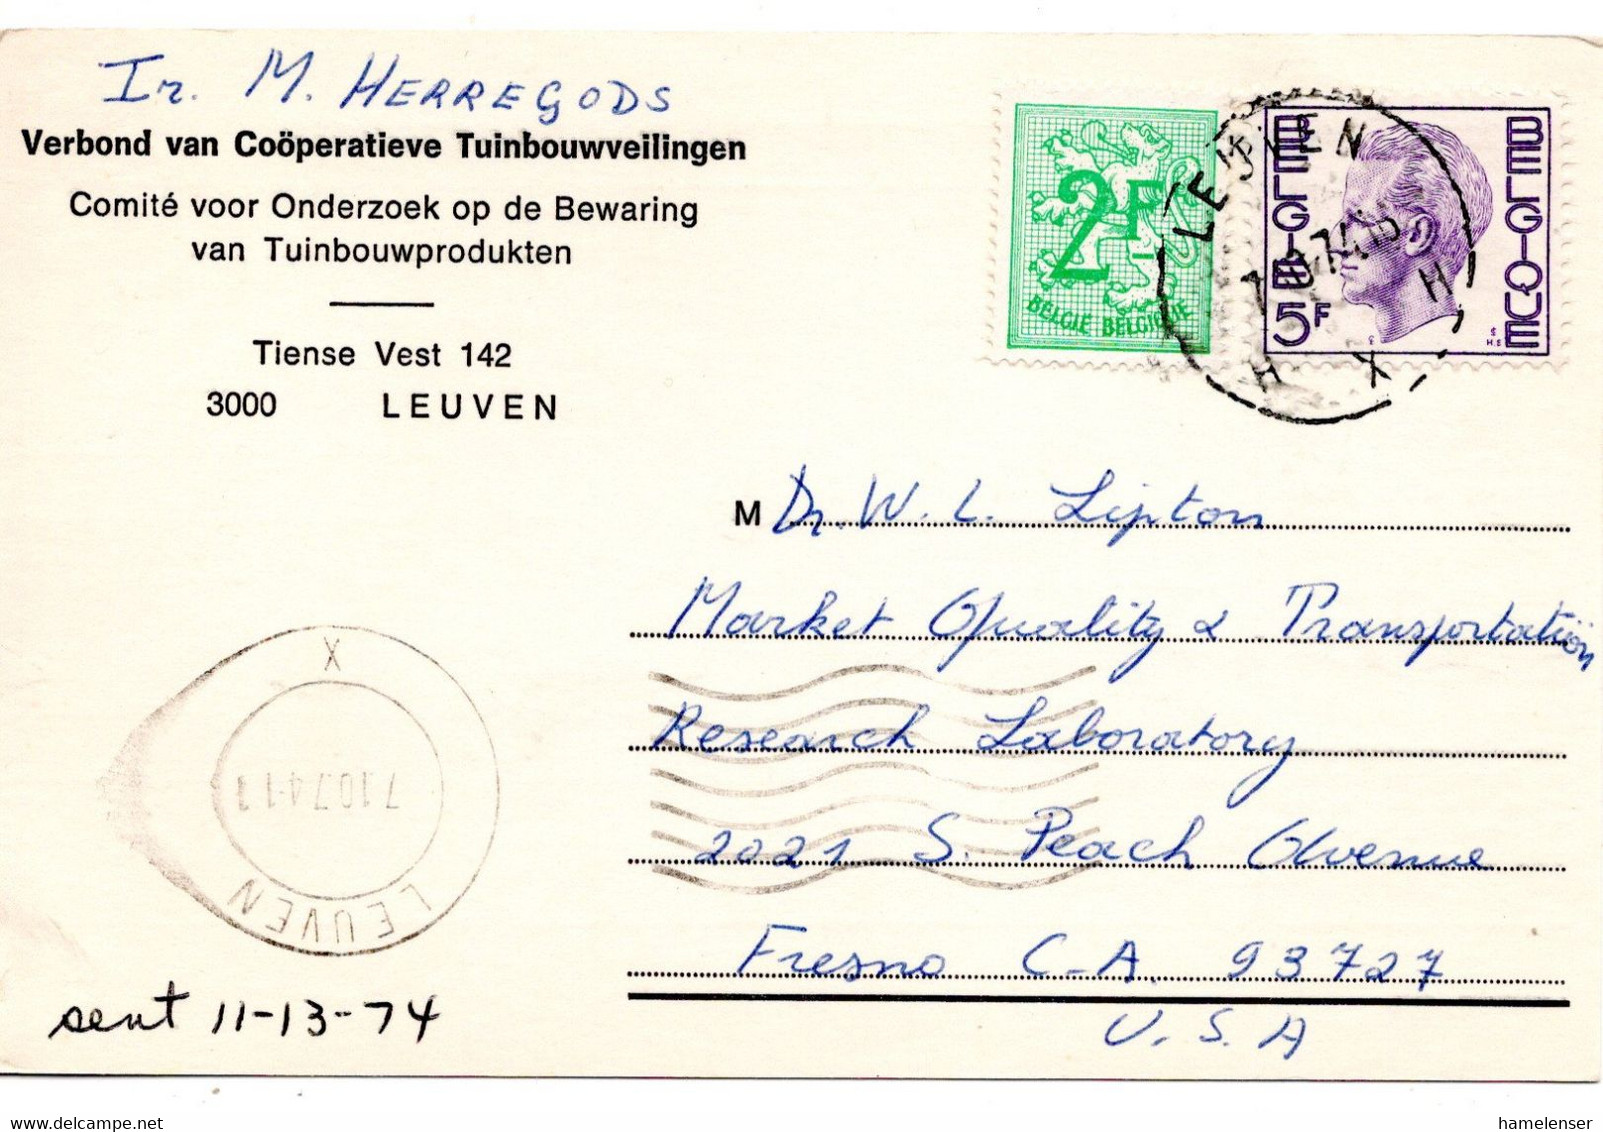 Ir. M. HERREGODS
Verbond van Coöperatieve Tuinbouwveilingen
Comité voor Onderzoek op de Bewaring
van Tuinbouwprodukten
Tiense Vest 142
3000 LEUVEN
2F
BELGIË BELGIQUE
BELGIË
BELGIQUE
5F
LEUVEN
H X H
M Dr. W. L. Lipton
Market Quality & Transportation
Research Laboratory
2021 S. Peach Avenue
Fresno C.A. 93727
U.S.A
X
7.10.74-11
LEUVEN
sent 11-13-74
www.delcampe.net
hamelenser